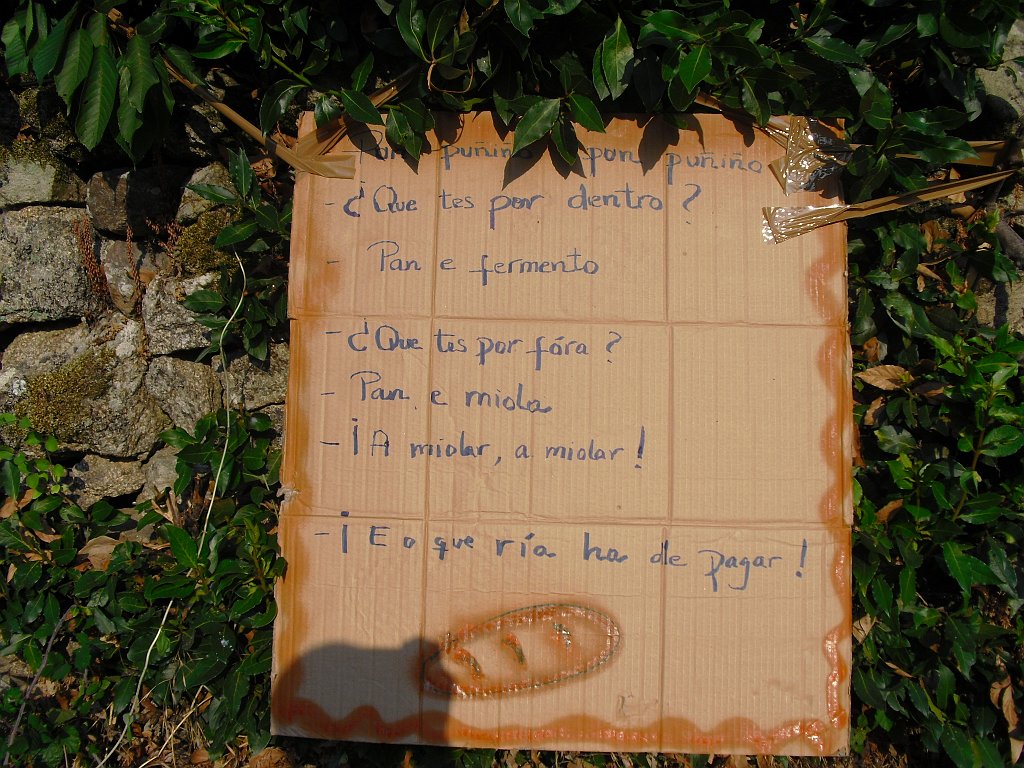 Pan puñiño pon puñiño
- ¿Que tes por dentro?
- Pan e fermento
- ¿Que tes por fóra?
- Pan e miola
- ¡A miolar, a miolar!
- ¡E o que ría ha de pagar!